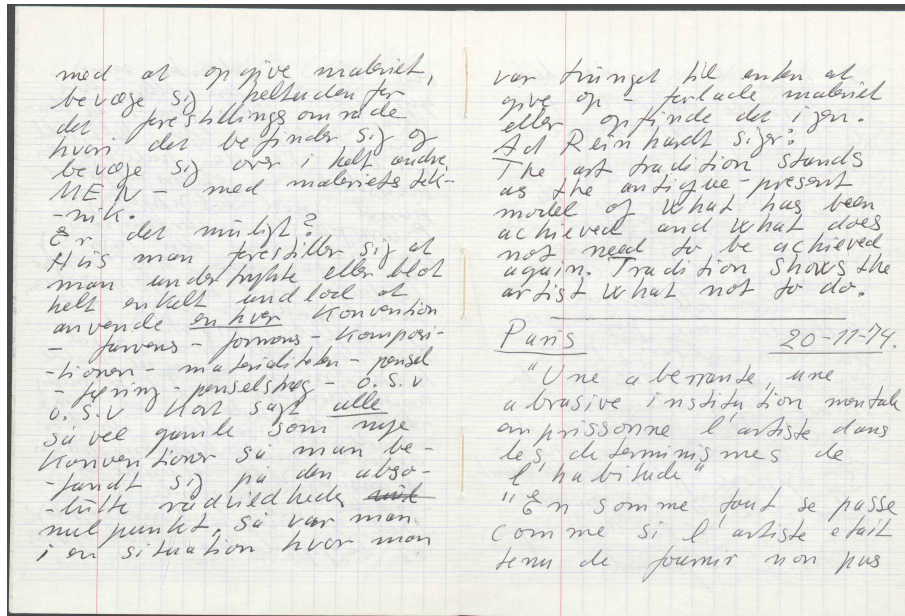 med at opgive maleriet,
bevæge sig heltuden for
det forestillingsområde
hvori det befinder sig og
bevæge sig over i helt andre.
MEN - med maleriets tek-
-nik.
Er det muligt?
Hvis man forestiller sig at
man undertrykte eller blot
helt enkelt undlod at
anvende en hver konvention
- farvens - formens - komposi-
-tionen - materialiteten - pensel
-føring - penselstrøg - o.s.v
o.s.v kort sagt alle
såvel gamle som nye
konventioner så man be-
-fandt sig på den abso-
-lutte rådvildheds
nulpunkt, så var man
i en situation hvor man
var tvunget til enten at
give op - forlade maleriet
eller opfinde det igen.
Ad Reinhardt siger:
The art tradition stands
as the antique-present
model of what has been
achieved and what does
not need to be achieved
again. Tradition shows the
artist what not to do.
Paris 20-11-74.
"Une aberrante, une
abrasive institution mentale
emprissonne l'artiste dans
les determinismes de
l'habitude"
"En somme tout se passe
comme si l'artiste etait
tenu de fournir non pas